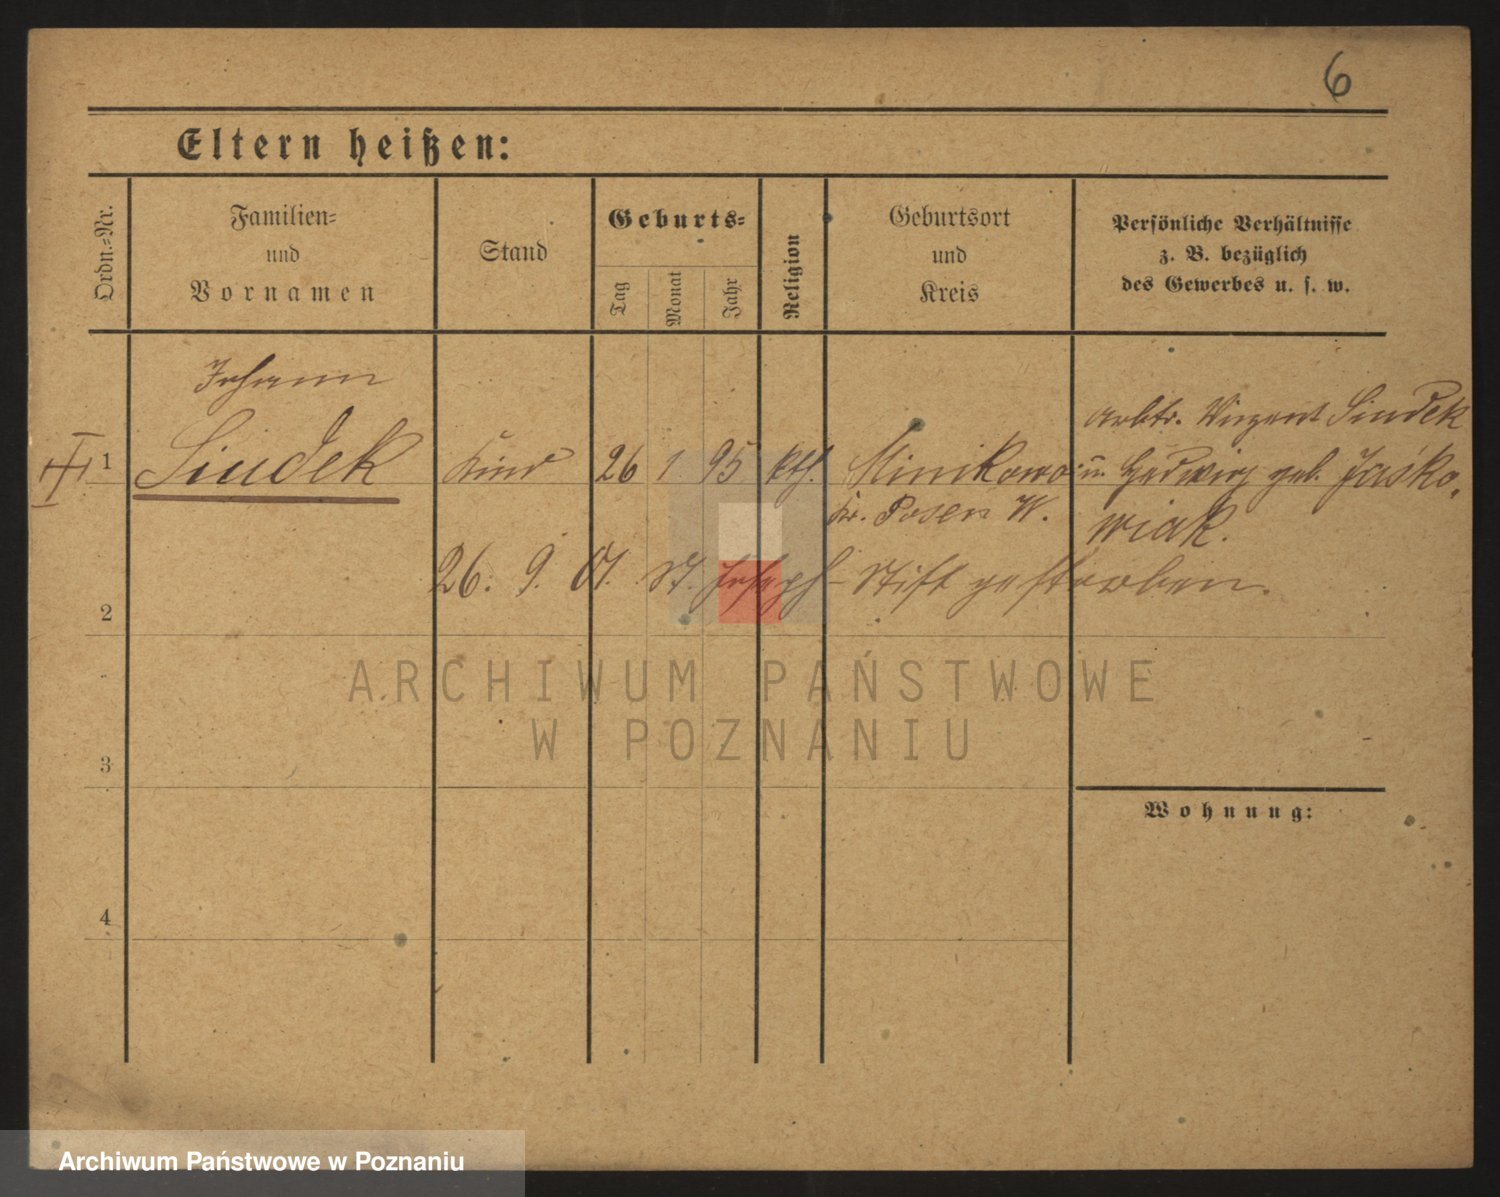 6
Eltern heißen:
Ordn.-Nr.
Familien- und Vornamen
Stand
Geburts-
Tag
Monat
Jahr
Religion
Geburtsort und Kreis
Persönliche Verhältnisse z. B. bezüglich des Gewerbes u. s. w.
Johann
Siudek
1
Kind
26
1
95
kth.
Minikowo
Kr. Posen W.
Arbtr. Vinzent Siudek
u. Hedwig geb. Jasko-
wiak.
26. 9. 01. St. Joseph-Stift gestorben.
2
3
4
Wohnung:
ARCHIWUM PAŃSTWOWE
W POZNANIU
Archiwum Państwowe w Poznaniu